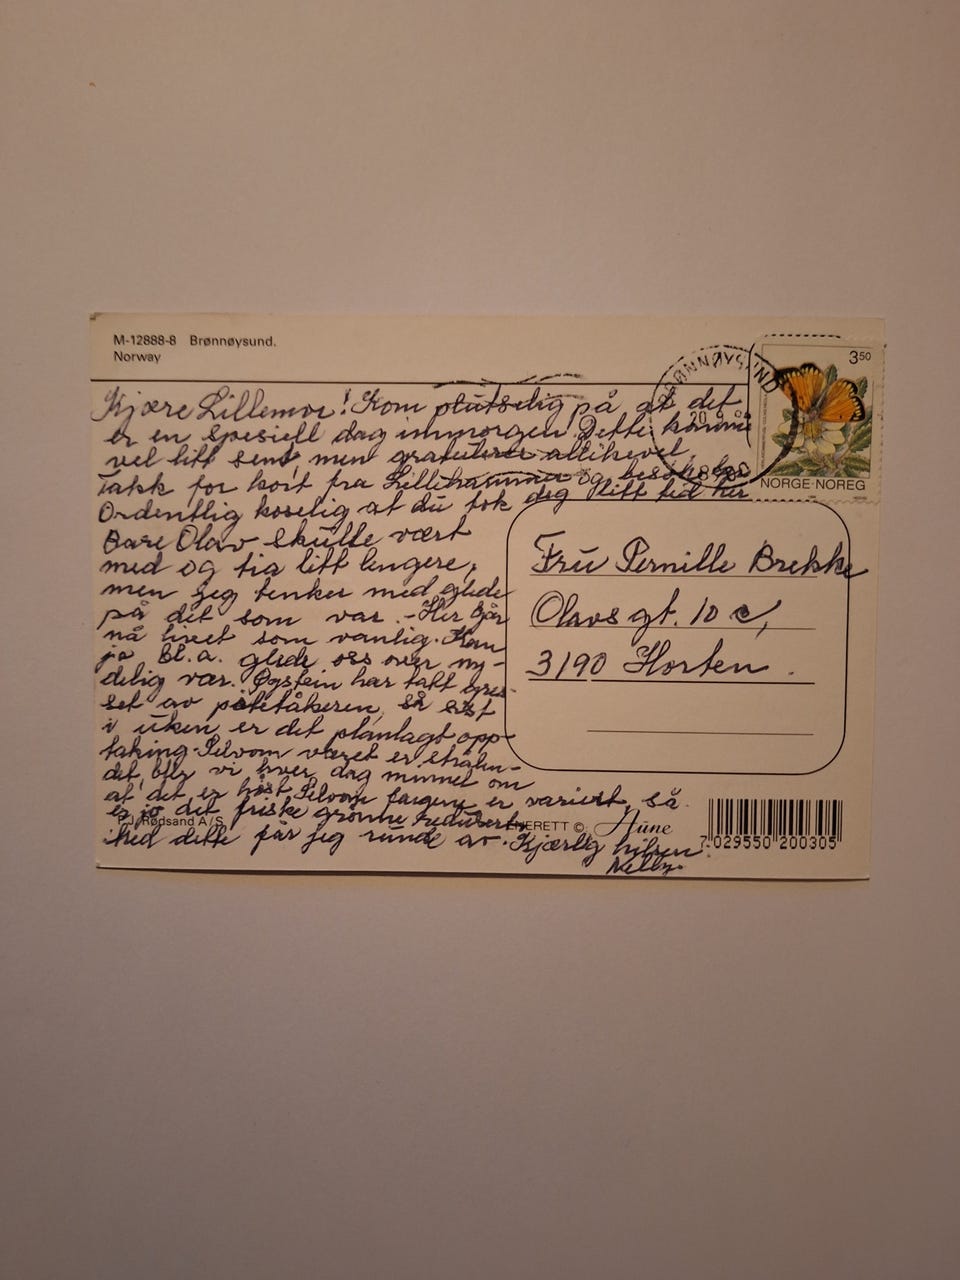 M-12888-8 Brønnøysund.
Norway
BRØNNØYSUND
20.9.
8900
3 50
NORGE·NOREG
Kjære Lillemor! Kom plutselig på at det
er en spesiell dag immorgen. Dette kommer
vel litt sent, men gratulerer allikevel.
Takk for kort fra Lillehammer og besøk her
Ordentlig koselig at du tok deg litt tid her
Bare Olav skulle vært
med og tia litt lengere,
men jeg tenker med glede
på det som var. - Her går
nå livet som vanlig. Kan
jo bl.a. glede oss over ny-
delig vær. Øystein har tatt gres-
set av potetåkeren, så sist
i uken er det planlagt opp-
taking. Selvom været er strålen-
de, blir vi hver dag minnet om
at det er høst. Selvom fargene er variert, så
er jo det friske grønne redusert.
Med dette får jeg runde av. Kjærlig hilsen
Nelly.
Fru Pernille Brekke
Olavs gt. 10 c,
3190 Horten.
P.J. Rødsand A/S
ENERETT © Aune
7 029550 200305